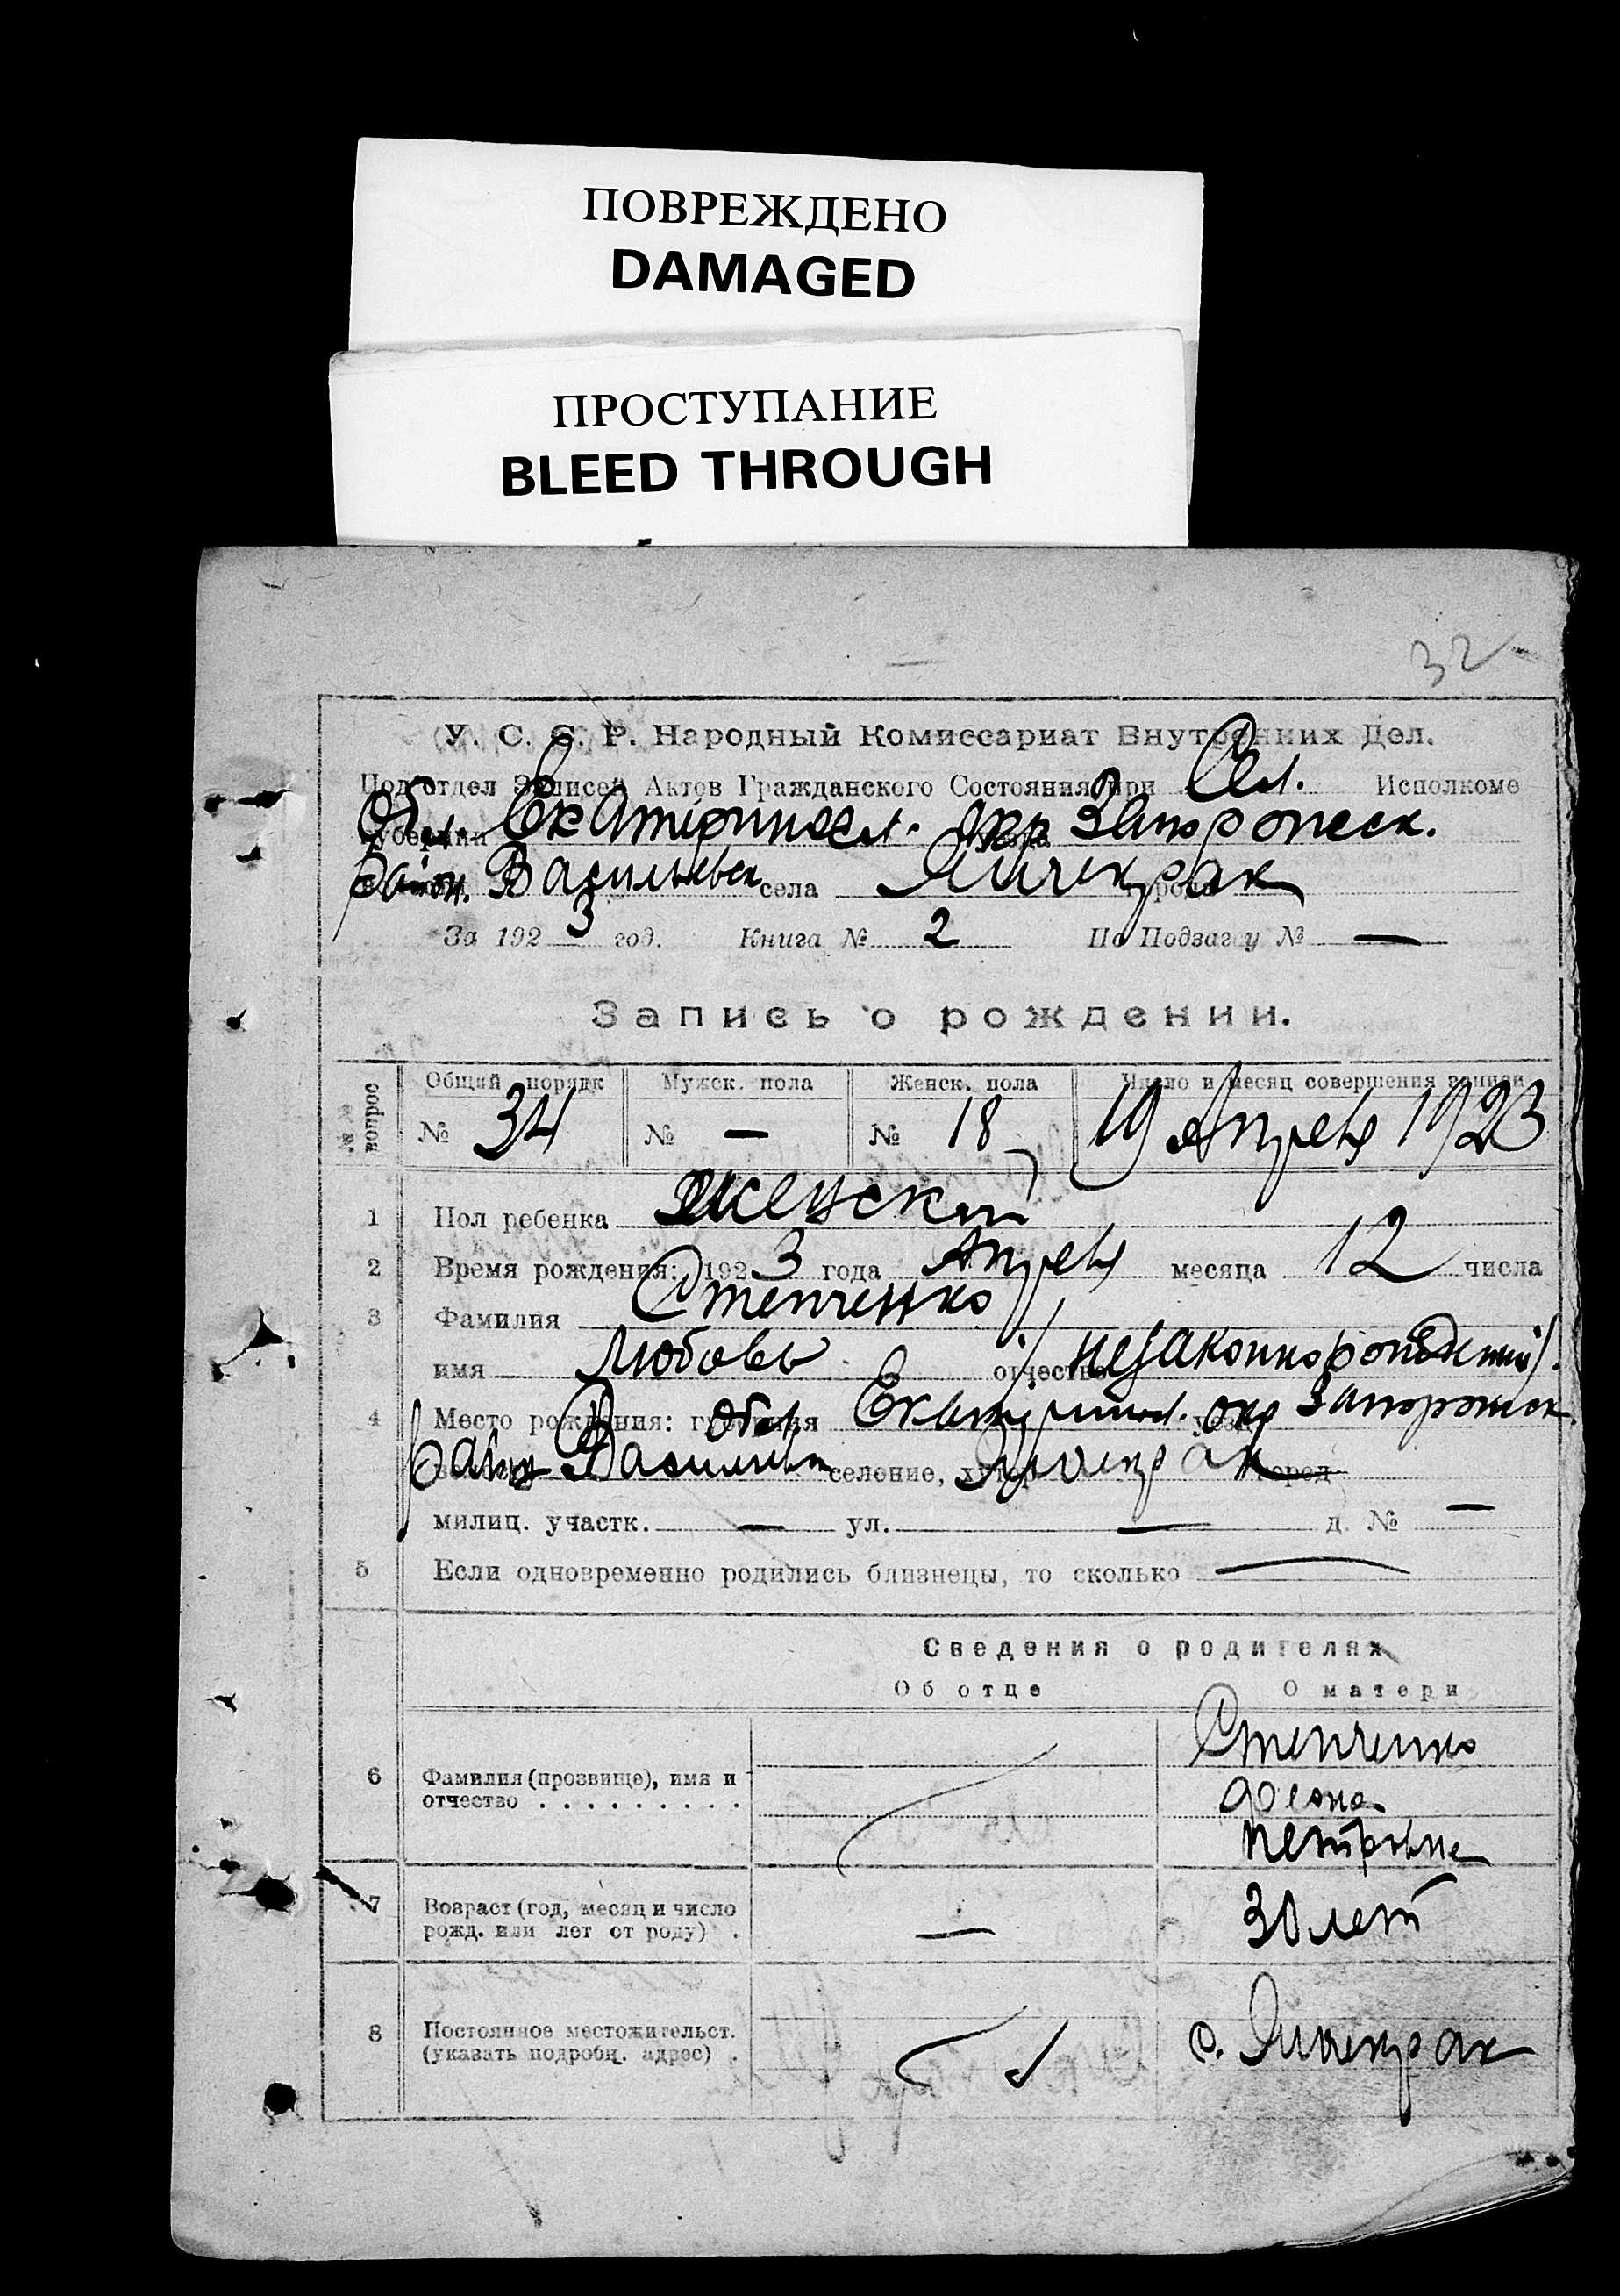 ПОВРЕЖДЕНО
DAMAGED
ПРОСТУПАНИЕ
BLEED THROUGH
32
У. С. С. Р. Народный Комиссариат Внутренних Дел.
Подотдел Записей Актов Гражданского Состояния при Сел. Исполкоме
губернии Екатериносл. окр Запорожск.
район. Васильевск села Янчекрак
За 1923 год. Книга № 2 По Подзагсу № —
Запись о рождении.
№№ вопрос
Общий порядк Мужск. пола Женск. пола Число и месяц совершения записи
№ 34 № — № 18 19 Апреля 1923
1 Пол ребенка женский
2 Время рождения: 1923 года Апреля месяца 12 числа
3 Фамилия Степченко
имя Любовь отчество незаконнорожденный
4 Место рождения: губерния Екатериносл. окр Запорожск
район Васильевск селение, хутор Янчекрак город
милиц. участк. — ул. — д. № —
5 Если одновременно родились близнецы, то сколько —
Сведения о родителях
Об отце О матери
6 Фамилия (прозвище), имя и
отчество . . . . . . . . .
Степченко
Петровна
7 Возраст (год, месяц и число
рожд. или лет от роду) .
— 30 лет
8 Постоянное местожительст.
(указать подробн. адрес) .
с. Янчекрак